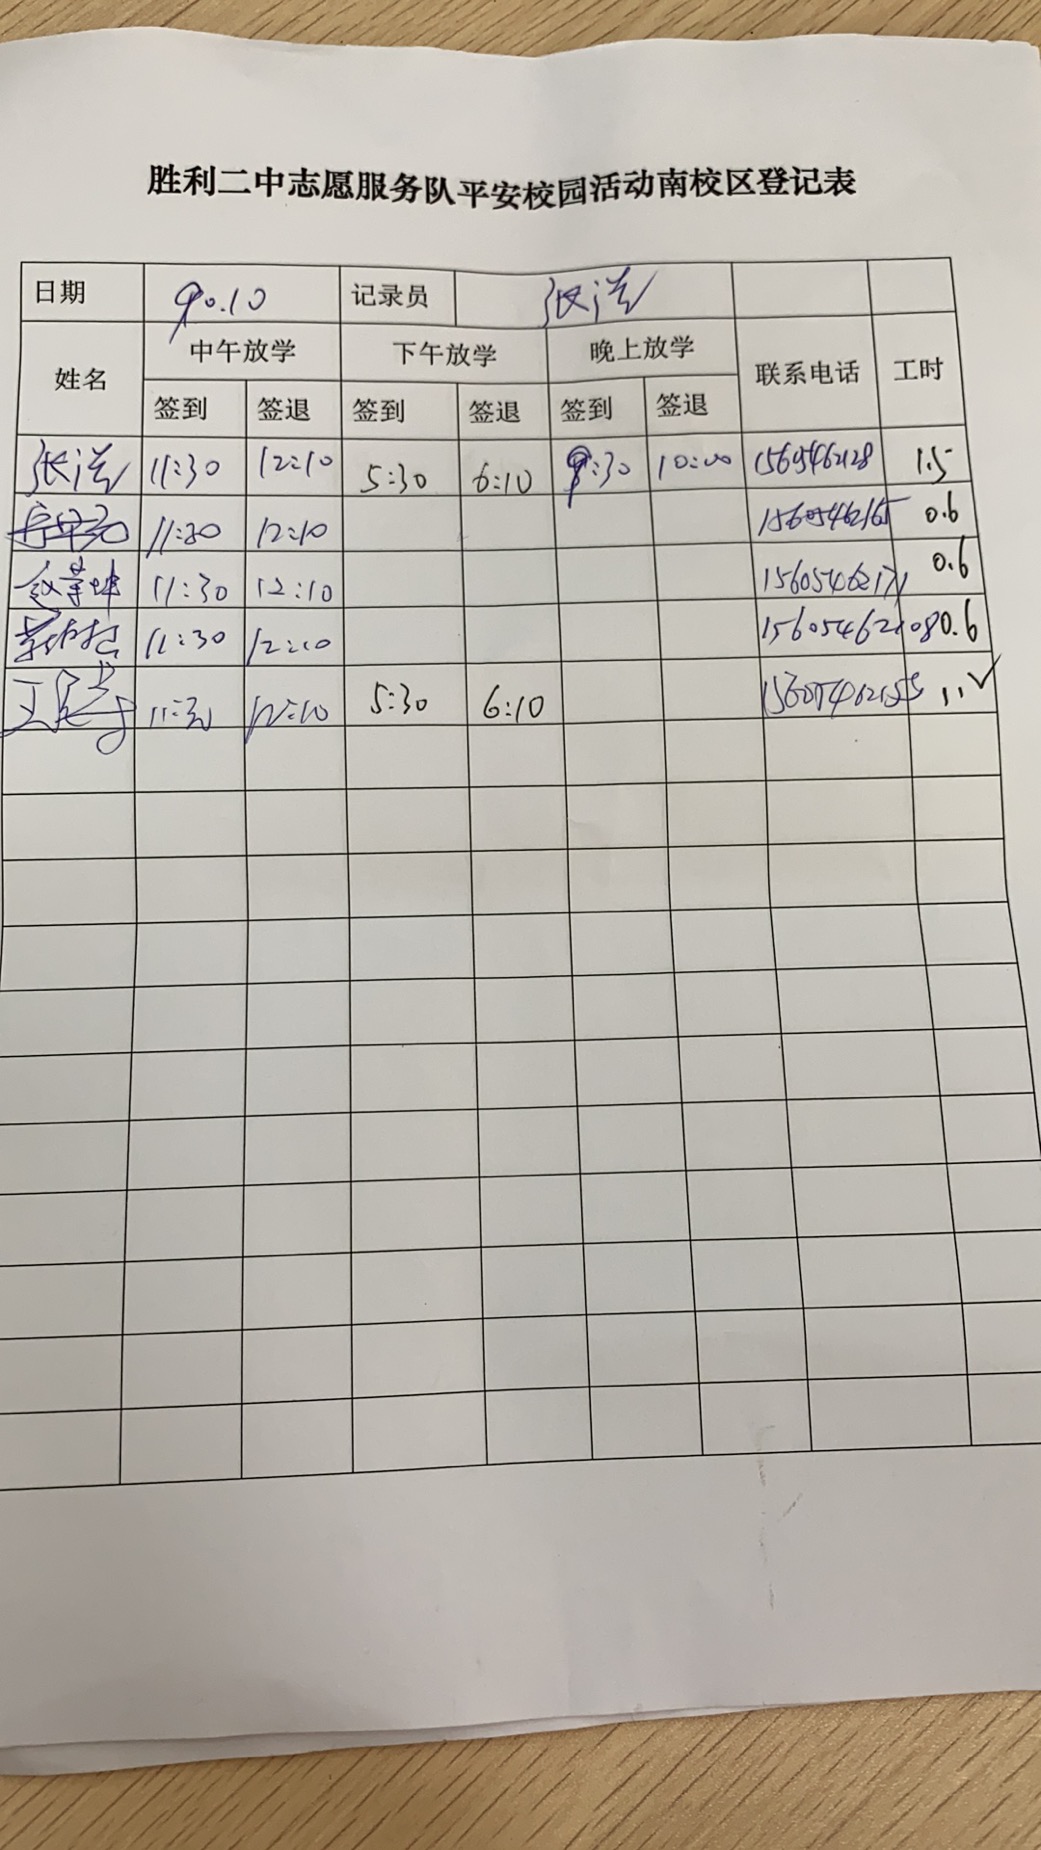 胜利二中志愿服务队平安校园活动南校区登记表
日期 9.10 记录员 张洋
姓名 中午放学 下午放学 晚上放学 联系电话 工时
签到 签退 签到 签退 签到 签退
张洋 11:30 12:10 5:30 6:10 9:30 10:00 1.5
11:30 12:10 15605462165 0.6
11:30 12:10 15605462171 0.6
11:30 12:10 15605462108 0.6
11:30 12:10 5:30 6:10 15605462155